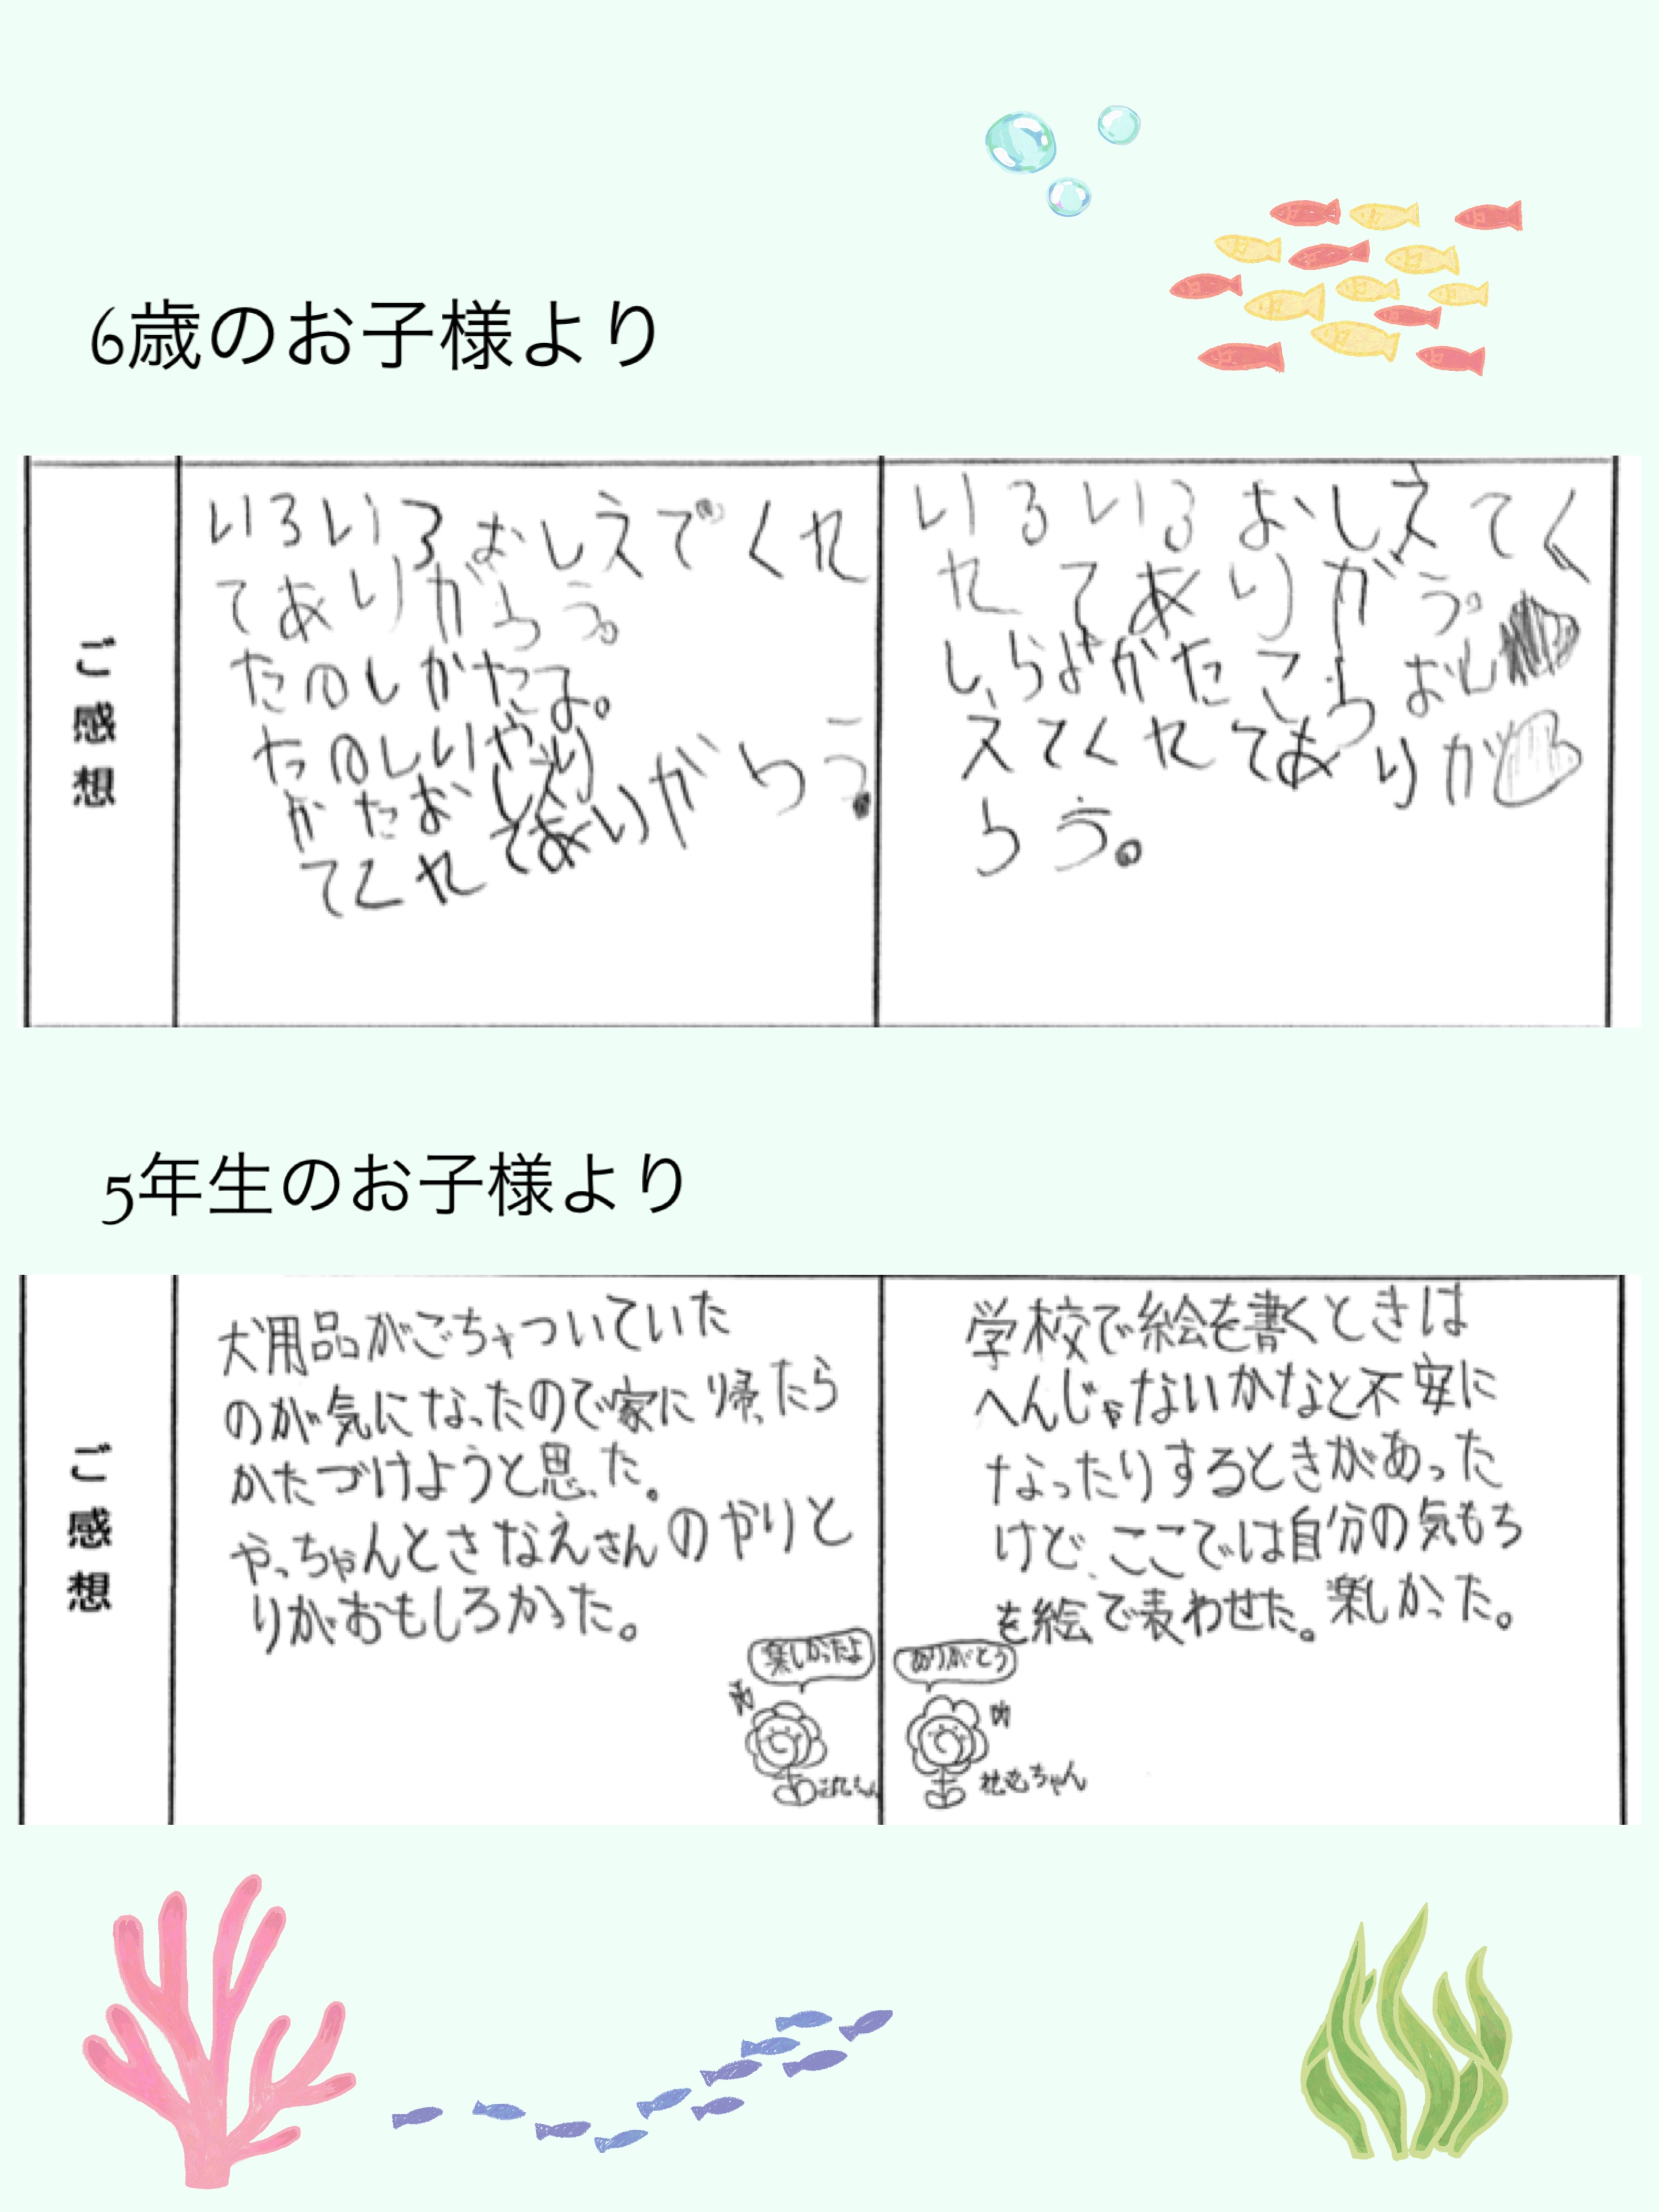 6歳のお子様より
ご感想
いろいろおしえてくれ
てありがとう。
たのしかたよ。
たのしいやり
かたおしえ
てくれてありがとう。
いろいろおしえてく
れてありがとう。
しらよがたことおし
えてくれてありが
とう。
5年生のお子様より
ご感想
犬用品がごちゃついていた
のが気になったので家に帰ったら
かたづけようと思った。
やっちゃんとさなえさんのやりと
りがおもしろかった。
楽しかったよ
学校で絵を書くときは
へんじゃないかなと不安に
なったりするときがあった
けど、ここでは自分の気もち
を絵で表わせた。楽しかった。
ありがとう